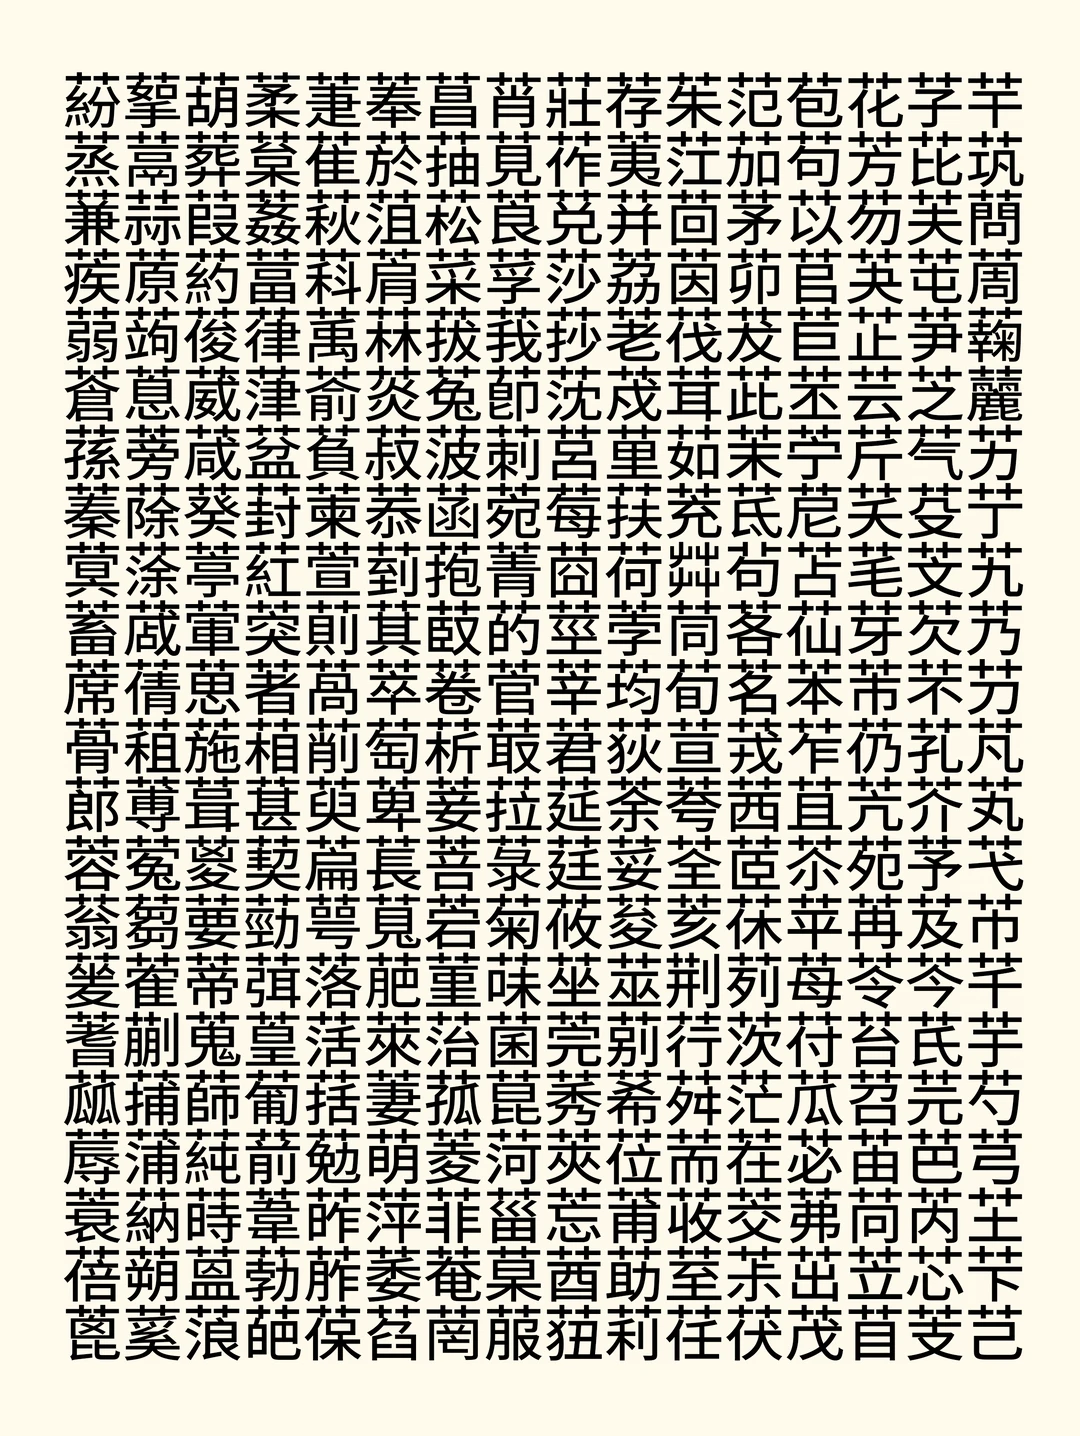 芉茿蘜艻艼艽艿芀芃芄芅芇芊芋芍芎芏芐芑
芓芘芙芚芛芝芞芟芠芡芣芤芥芧芨芩芪芫芭芮芯芰
花芳芴芵芷芸芹芺芼芽芾芿苀苑苒苓苔苕苗苘苙苜
苞苟苡苢苣苤苧苨苫苮苯苲苴苶苹苺苻苽苾茀茁茂
范茄茅茆茇茈茉茋茍茖茗茙茜茞茠茢茨茫茬茭茮茯
茱茳茴茵茷茸茹茺茻茼荀荁荂荃荄荆荇荈荋荍荎荏
荐荑荓荔荖荗荲荴荷荸荺荻荼荽荾莁莂莃莅莆莇莉
莊莋莌莎莏莐莒莓莔莖莘莙莚莛莜莝莞莠莢莣莤莥
莦莧莨莩莪莭莿菀菁菂菅菆菈菉菊菋菌菎菏菑菒菔
菖菗菘菜菝菟菠菡菢菣菤菥菨菩菪菫菭菰菱菲菴菵
菶菸菹菺菻菼菽菾菿萁萃萄萆萇萈萉萊萋萌萍萎萏
萐萑萩萪萭萮萯萰萱萴萵萷萸萹萼落萿葀葂葃葄葆
葇葈葌葍葎葏葐葑葒葖著葙葚葜葝葞葟葡葥葦葧葩
葫葬葭葯葰葳葴葵葶葷葸葹葺葼葽蒂蒐蒒蒓蒔蒕蒗
蒘蒚蒜蒝蒟蒠蒡蒢蒤蒧蒨蒩蒪蒬蒭蒮蒯蒱蒲蒳蒴蒵
蒶蒸蒹蒺蒻蒼蓀蓁蓂蓄蓆蓇蓈蓉蓊蓌蓍蓏蓐蓑蓓蓖